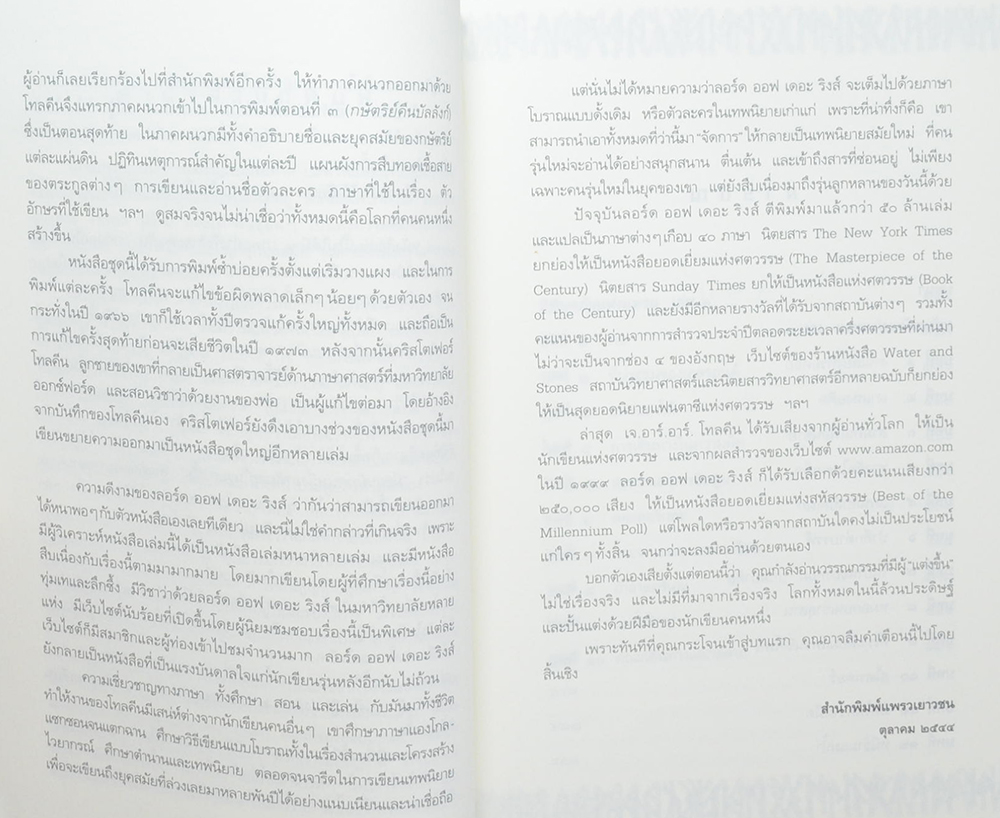 ผู้อ่านก็เลยเรียกร้องไปที่สำนักพิมพ์อีกครั้ง ให้ทำภาคผนวกออกมาด้วย
โทลคีนจึงแทรกภาคผนวกเข้าไปในการพิมพ์ตอนที่ ๓ (กษัตริย์คืนบัลลังก์)
ซึ่งเป็นตอนสุดท้าย ในภาคผนวกมีทั้งคำอธิบายชื่อและยุคสมัยของกษัตริย์
แต่ละแผ่นดิน ปฏิทินเหตุการณ์สำคัญในแต่ละปี แผนผังการสืบทอดเชื้อสาย
ของตระกูลต่างๆ การเขียนและอ่านชื่อตัวละคร ภาษาที่ใช้ในเรื่อง ตัว
อักษรที่ใช้เขียน ฯลฯ ดูสมจริงจนไม่น่าเชื่อว่าทั้งหมดนี้คือโลกที่คนคนหนึ่ง
สร้างขึ้น
หนังสือชุดนี้ได้รับการพิมพ์ซ้ำบ่อยครั้งตั้งแต่เริ่มวางแผง และในการ
พิมพ์แต่ละครั้ง โทลคีนจะแก้ไขข้อผิดพลาดเล็กๆ น้อยๆ ด้วยตัวเอง จน
กระทั่งในปี ๑๙๖๖ เขาก็ใช้เวลาทั้งปีตรวจแก้ครั้งใหญ่ทั้งหมด และถือเป็น
การแก้ไขครั้งสุดท้ายก่อนจะเสียชีวิตในปี ๑๙๗๓ หลังจากนั้นคริสโตเฟอร์
โทลคีน ลูกชายของเขาที่กลายเป็นศาสตราจารย์ด้านภาษาศาสตร์ที่มหาวิทยาลัย
ออกซ์ฟอร์ด และสอนวิชาว่าด้วยงานของพ่อ เป็นผู้แก้ไขต่อมา โดยอ้างอิง
จากบันทึกของโทลคีนเอง คริสโตเฟอร์ยังดึงเอาบางช่วงของหนังสือชุดนี้มา
เขียนขยายความออกมาเป็นหนังสือชุดใหญ่อีกหลายเล่ม
ความดีงามของลอร์ด ออฟ เดอะ ริงส์ ว่ากันว่าสามารถเขียนออกมา
ได้หนาพอๆ กับตัวหนังสือเองเลยทีเดียว และนี่ไม่ใช่คำกล่าวที่เกินจริง เพราะ
มีผู้วิเคราะห์หนังสือเล่มนี้ได้เป็นหนังสือเล่มหนาหลายเล่ม และมีหนังสือ
สืบเนื่องกับเรื่องนี้ตามมามากมาย โดยมากเขียนโดยผู้ที่ศึกษาเรื่องนี้อย่าง
ทุ่มเทและลึกซึ้ง มีวิชาว่าด้วยลอร์ด ออฟ เดอะ ริงส์ ในมหาวิทยาลัยหลาย
แห่ง มีเว็บไซต์นับร้อยที่เปิดขึ้นโดยผู้นิยมชมชอบเรื่องนี้เป็นพิเศษ แต่ละ
เว็บไซต์ก็มีสมาชิกและผู้ท่องเข้าไปชมจำนวนมาก ลอร์ด ออฟ เดอะ ริงส์
ยังกลายเป็นหนังสือที่เป็นแรงบันดาลใจแก่นักเขียนรุ่นหลังอีกนับไม่ถ้วน
ความเชี่ยวชาญทางภาษา ทั้งศึกษา สอน และเล่น กับมันมาทั้งชีวิต
ทำให้งานของโทลคีนมีเสน่ห์ต่างจากนักเขียนคนอื่นๆ เขาศึกษาภาษาแองโกล-
แซกซอนจนแตกฉาน ศึกษาวิธีเขียนแบบโบราณทั้งในเรื่องสำนวนและโครงสร้าง
ไวยากรณ์ ศึกษาตำนานและเทพนิยาย ตลอดจนจารีตในการเขียนเทพนิยาย
เพื่อจะเขียนถึงยุคสมัยที่ล่วงเลยมาหลายพันปีได้อย่างแนบเนียนและน่าเชื่อถือ
แต่นั่นไม่ได้หมายความว่าลอร์ด ออฟ เดอะ ริงส์ จะเต็มไปด้วยภาษา
โบราณแบบดั้งเดิม หรือตัวละครในเทพนิยายเก่าแก่ เพราะที่น่าทึ่งก็คือ เขา
สามารถนำเอาทั้งหมดที่ว่านี้มา "จัดการ" ให้กลายเป็นเทพนิยายสมัยใหม่ ที่คน
รุ่นใหม่จะอ่านได้อย่างสนุกสนาน ตื่นเต้น และเข้าถึงสารที่ซ่อนอยู่ ไม่เพียง
เฉพาะคนรุ่นใหม่ในยุคของเขา แต่ยังสืบเนื่องมาถึงรุ่นลูกหลานของวันนี้ด้วย
ปัจจุบันลอร์ด ออฟ เดอะ ริงส์ ตีพิมพ์มาแล้วกว่า ๕๐ ล้านเล่ม
และแปลเป็นภาษาต่างๆ เกือบ ๔๐ ภาษา นิตยสาร The New York Times
ยกย่องให้เป็นหนังสือยอดเยี่ยมแห่งศตวรรษ (The Masterpiece of the
Century) นิตยสาร Sunday Times ยกให้เป็นหนังสือแห่งศตวรรษ (Book
of the Century) และยังมีอีกหลายรางวัลที่ได้รับจากสถาบันต่างๆ รวมทั้ง
คะแนนของผู้อ่านจากการสำรวจประจำปีตลอดระยะเวลาครึ่งศตวรรษที่ผ่านมา
ไม่ว่าจะเป็นจากช่อง ๔ ของอังกฤษ เว็บไซต์ของร้านหนังสือ Water and
Stones สถาบันวิทยาศาสตร์และนิตยสารวิทยาศาสตร์อีกหลายฉบับก็ยกย่อง
ให้เป็นสุดยอดนิยายแฟนตาซีแห่งศตวรรษ ฯลฯ
ล่าสุด เจ.อาร์.อาร์. โทลคีน ได้รับเสียงจากผู้อ่านทั่วโลก ให้เป็น
นักเขียนแห่งศตวรรษ และจากผลสำรวจของเว็บไซต์ www.amazon.com
ในปี ๑๙๙๙ ลอร์ด ออฟ เดอะ ริงส์ ก็ได้รับเลือกด้วยคะแนนเสียงกว่า
๒๕๐,๐๐๐ เสียง ให้เป็นหนังสือยอดเยี่ยมแห่งสหัสวรรษ (Best of the
Millennium Poll) แต่โพลใดหรือรางวัลจากสถาบันใดคงไม่เป็นประโยชน์
แก่ใครๆ ทั้งสิ้น จนกว่าจะลงมืออ่านด้วยตนเอง
บอกตัวเองเสียตั้งแต่ตอนนี้ว่า คุณกำลังอ่านวรรณกรรมที่มีผู้ "แต่งขึ้น"
ไม่ใช่เรื่องจริง และไม่มีที่มาจากเรื่องจริง โลกทั้งหมดในนี้ล้วนประดิษฐ์
และปั้นแต่งด้วยฝีมือของนักเขียนคนหนึ่ง
เพราะทันทีที่คุณกระโจนเข้าสู่บทแรก คุณอาจลืมคำเตือนนี้ไปโดย
สิ้นเชิง
สำนักพิมพ์แพรวเยาวชน
ตุลาคม ๒๕๔๔